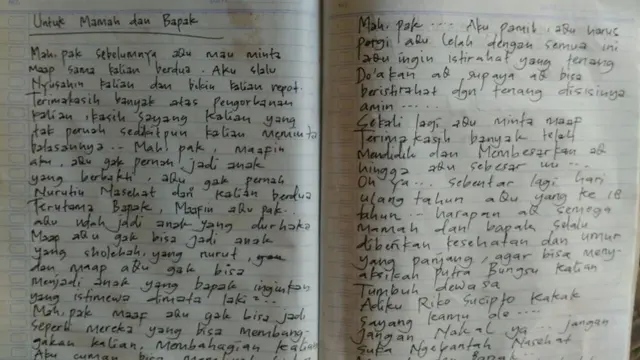 Untuk Mamah dan Bapak
Mah, pak sebelumnya aku mau minta
maap sama kalian berdua. Aku slalu
Nyusahin kalian dan bikin kalian repot.
Terimakasih banyak atas pengorbanan
kalian, kasih sayang kalian yang
tak pernah sedikitpun kalian meminta
balasannya... Mah, pak, maapin
aku, aku gak pernah jadi anak
yang berbakti, aku gak pernah
Nurutin Nasehat dari kalian berdua
Terutama Bapak, Maapin aku pak..
aku udah jadi anak yang durhaka
Maap aku gak bisa jadi anak
yang sholehah, yang nurut,
dan maap aku gak bisa
menjadi anak yang bapak inginkan
yang istimewa dimata laki...
Mah, pak maap aku gak bisa jadi
Seperti mereka yang bisa membang-
gakan kalian, Membahagian kalian
Aku cuman bisa
Mah, pak .... Aku pamit, aku harus
pergi aku lelah dengan semua ini
aku ingin istirahat yang tenang
Do'akan aq supaya aq bisa
beristirahat dgn tenang disisinya
amin .....
Sekali lagi aku minta maap
Terima kasih banyak telah
Mendidik dan Membesarkan aq
hingga aku sebesar ini...
Oh ya... sebentar lagi hari
ulang tahun aku yang ke 18
tahun... harapan aq semoga
mamah dan bapak slalu
diberikan kesehatan dan umur
yang panjang, agar bisa meny-
aksikan putra Bungsu kalian
Tumbuh dewasa
Adiku Riko Sucipto kakak
sayang kamu de....
Jangan Nakal ya... jangan
suka Ngebantah Nasehat